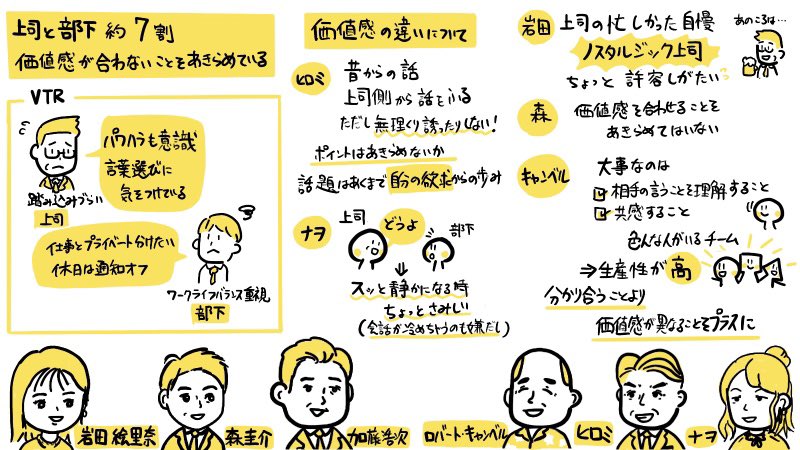 上司と部下 約7割
価値感が合わないことをあきらめている
VTR
パワハラも意識
言葉選びに
気をつけている
踏み込みづらい
上司
仕事とプライバート分けたい
休日は通知オフ
ワークライフバランス重視
部下
価値感の違いについて
ヒロミ
昔からの話
上司側から話をふる
ただし無理くり誘ったりしない!
ポイントはあきらめないか
話題はあくまで自分の欲求からの歩み
ナヲ
上司
どうよ
部下
スッと静かになる時
ちょっとさみしい
(会話が冷めちゃうのも嫌だし)
岩田
上司の忙しかった自慢
ノスタルジック上司
ちょっと許容しがたい
あのころは…
森
価値感を合わせることを
あきらめてはいない
キャンベル
大事なのは
相手の言うことを理解すること
共感すること
色んな人がいるチーム
⇒生産性が高
分かり合うことより
価値感が異なることをプラスに
岩田絵里奈
森圭介
加藤浩次
ロバート・キャンベル
ヒロミ
ナヲ